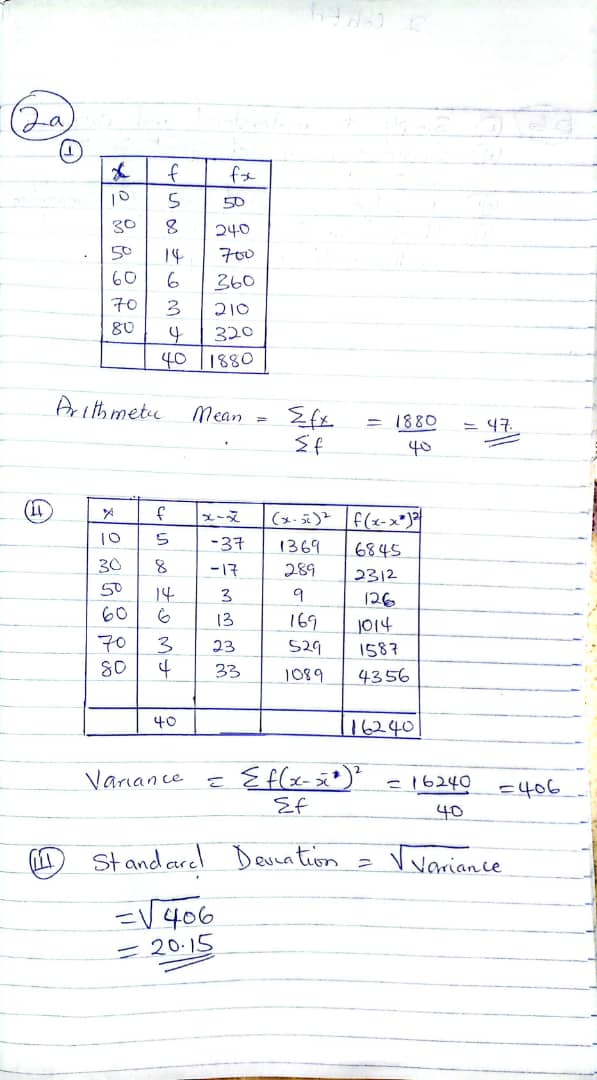 2a
I
x f fx
10 5 50
30 8 240
50 14 700
60 6 360
70 3 210
80 4 320
40 1880
Arithmetic Mean = Σfx = 1880 = 47.
Σf 40
II
x f x-x̄ (x-x̄)² f(x-x̄)²
10 5 -37 1369 6845
30 8 -17 289 2312
50 14 3 9 126
60 6 13 169 1014
70 3 23 529 1587
80 4 33 1089 4356
40 16240
Variance = Σf(x-x̄)² = 16240 = 406
Σf 40
III Standard Deviation = √Variance
= √406
= 20.15